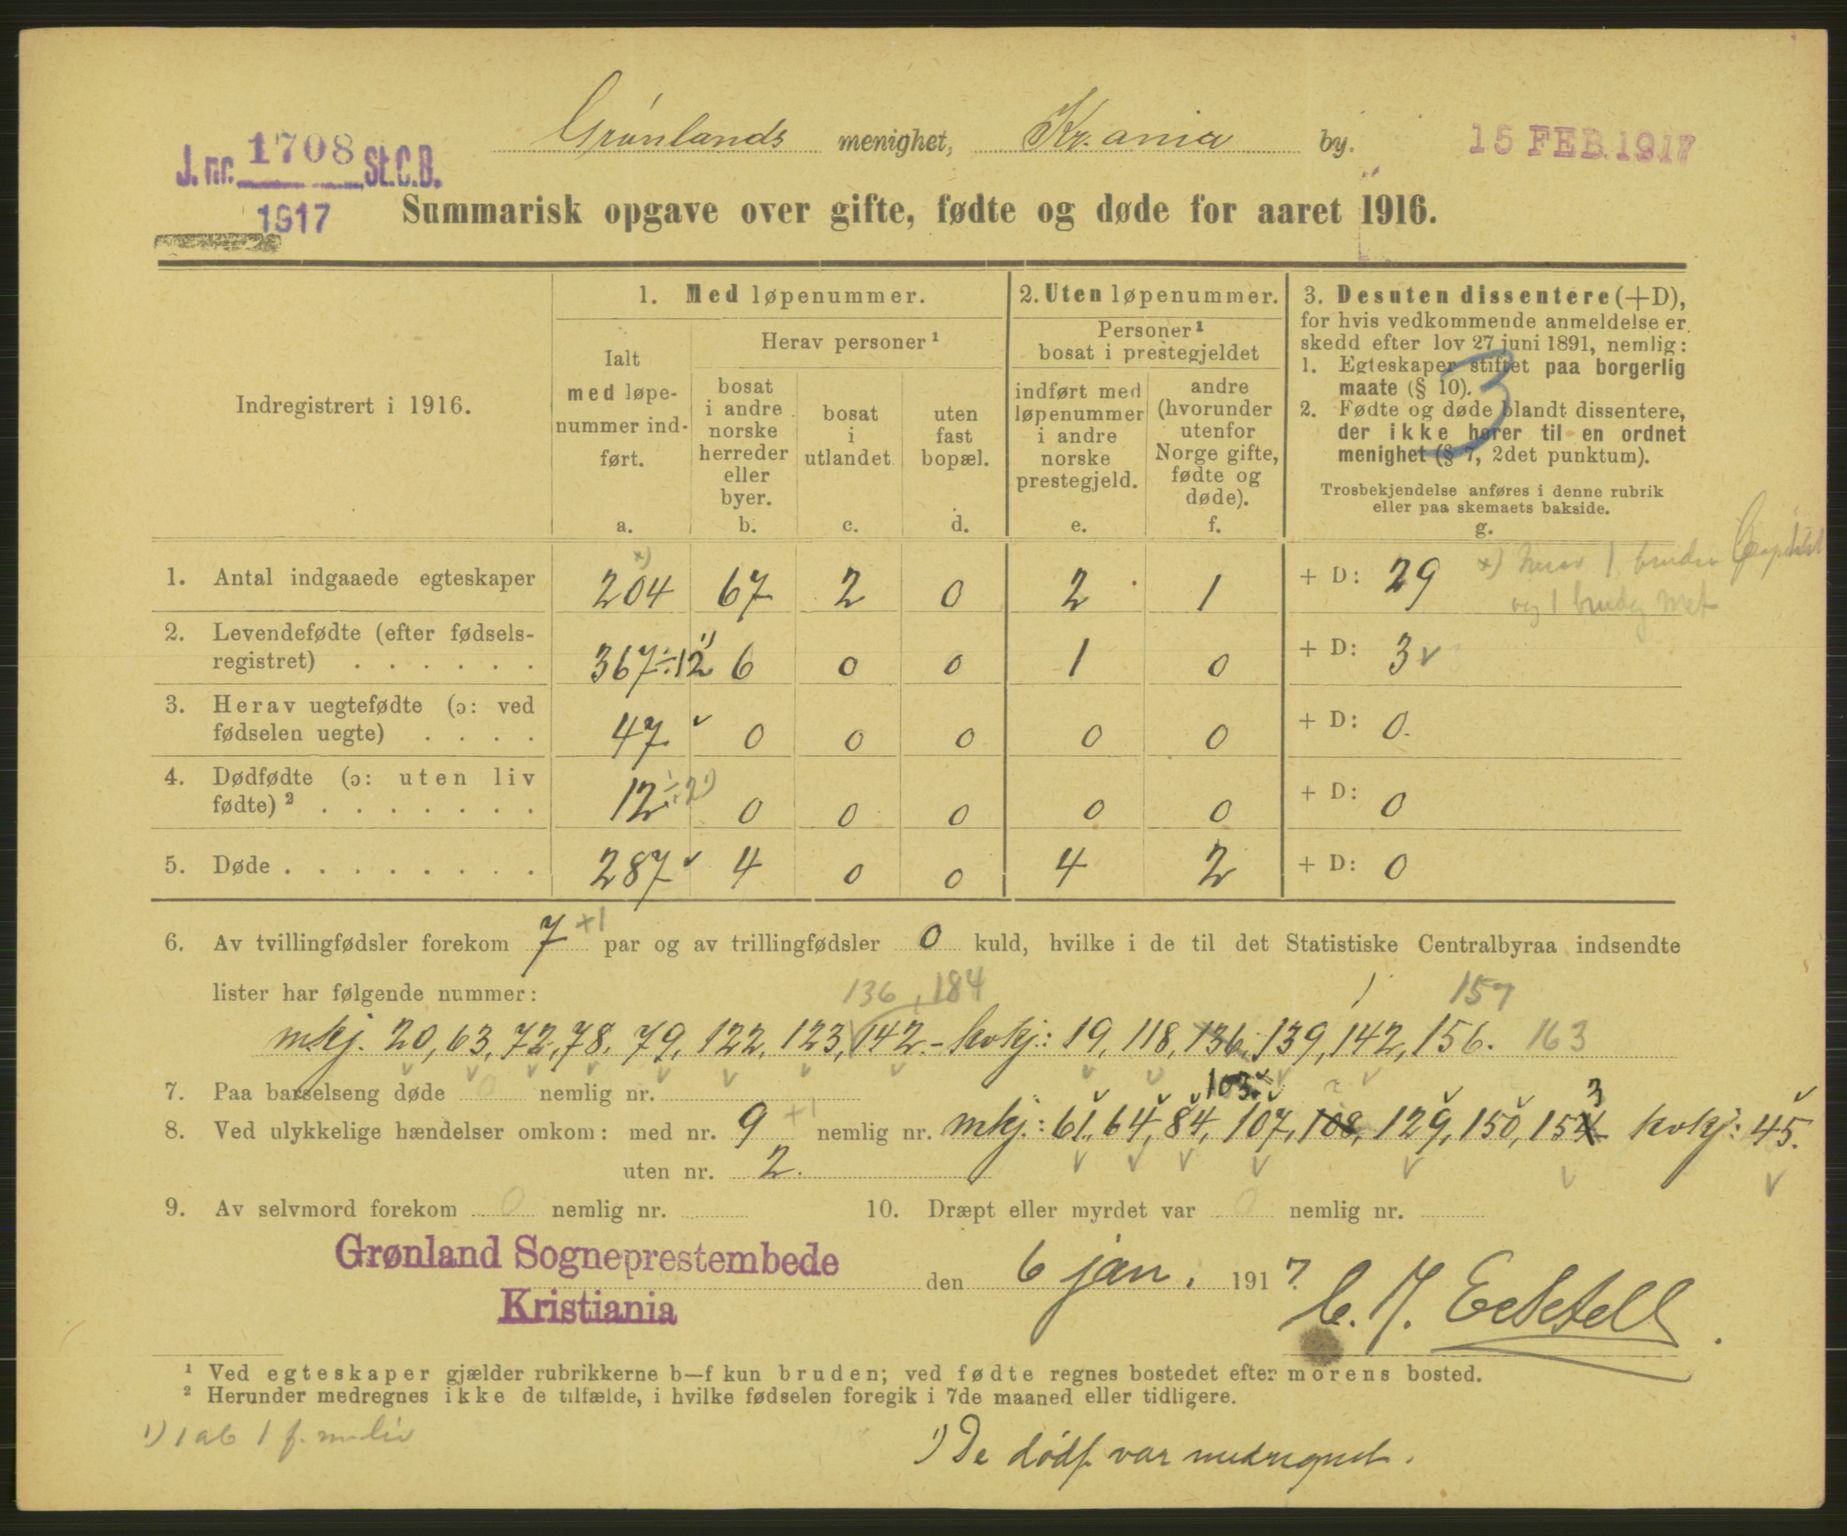 Grønlands menighet, Kr.ania by.
15 FEB. 1917
J. nr. 1708 St.C.B.
1917
Summarisk opgave over gifte, fødte og døde for aaret 1916.
Indregistrert i 1916.
1. Med løpenummer.
Ialt
med løpe-
nummer ind-
ført.
a.
Herav personer ¹
bosat
i andre
norske
herreder
eller
byer.
b.
bosat
i
utlandet
c.
uten
fast
bopæl.
d.
2. Uten løpenummer.
Personer ¹
bosat i prestegjeldet
indført med
løpenummer
i andre
norske
prestegjeld.
e.
andre
(hvorunder
utenfor
Norge gifte,
fødte og
døde).
f.
3. Desuten dissentere (+D),
for hvis vedkommende anmeldelse er
skedd efter lov 27 juni 1891, nemlig:
1. Egteskaper stiftet paa borgerlig
maate (§ 10).
2. Fødte og døde blandt dissentere,
der ikke hører til en ordnet
menighet (§ 7, 2det punktum).
3
Trosbekjendelse anføres i denne rubrik
eller paa skemaets bakside.
g.
1. Antal indgaaede egteskaper 204 x) 67 2 0 2 1 + D: 29 x) herav 1
og 1
2. Levendefødte (efter fødsels-
registret) . . . . . . 367÷12 ¹) 6 0 0 1 0 + D: 3 ✓
3. Herav uegtefødte (ɔ: ved
fødselen uegte) . . . . 47 ✓ 0 0 0 0 0 + D: 0.
4. Dødfødte (ɔ: uten liv
fødte) ² . . . . . . . 12 ÷2 ¹) 0 0 0 0 0 + D: 0
5. Døde . . . . . . . . 287 ✓ 4 0 0 4 2 + D: 0
6. Av tvillingfødsler forekom 7 +1 par og av trillingfødsler 0 kuld, hvilke i de til det Statistiske Centralbyraa indsendte
lister har følgende nummer: 136, 184 157
mkj. 20, 63, 72, 78, 79, 122, 123, 142. – kvkj: 19, 118, 136, 139, 142, 156. 163
7. Paa barselseng døde 0 nemlig nr.
103.
8. Ved ulykkelige hændelser omkom: med nr. 9 +1 nemlig nr. mkj.: 61, 64, 84, 107, 108, 129, 150, 154 3 kvkj: 45.
uten nr. 2.
9. Av selvmord forekom 0 nemlig nr.
10. Dræpt eller myrdet var 0 nemlig nr.
Grønland Sogneprestembede
Kristiania
den 6 jan. 1917.
¹ Ved egteskaper gjælder rubrikkerne b—f kun bruden; ved fødte regnes bostedet efter morens bosted.
² Herunder medregnes ikke de tilfælde, i hvilke fødselen foregik i 7de maaned eller tidligere.
¹) 1 ab 1 f.
¹) De dødf. var medregnet.